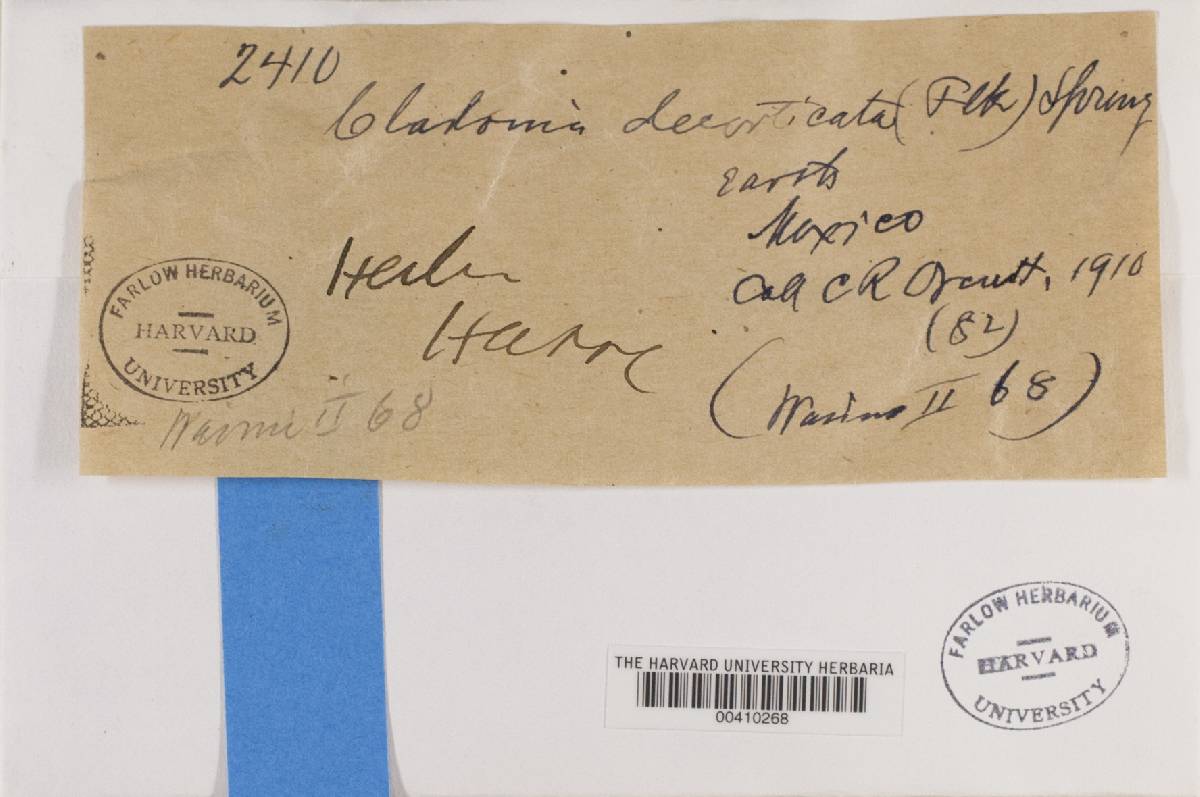 2410
Cladonia decorticata (Flk) Spreng
earth
Mexico
Coll C R Orcutt, 1910
(82)
Herb
Harr
(Wainio II 68)
FARLOW HERBARIUM
HARVARD
UNIVERSITY
Wainio II 68
THE HARVARD UNIVERSITY HERBARIA
00410268
FARLOW HERBARIUM
HARVARD
UNIVERSITY